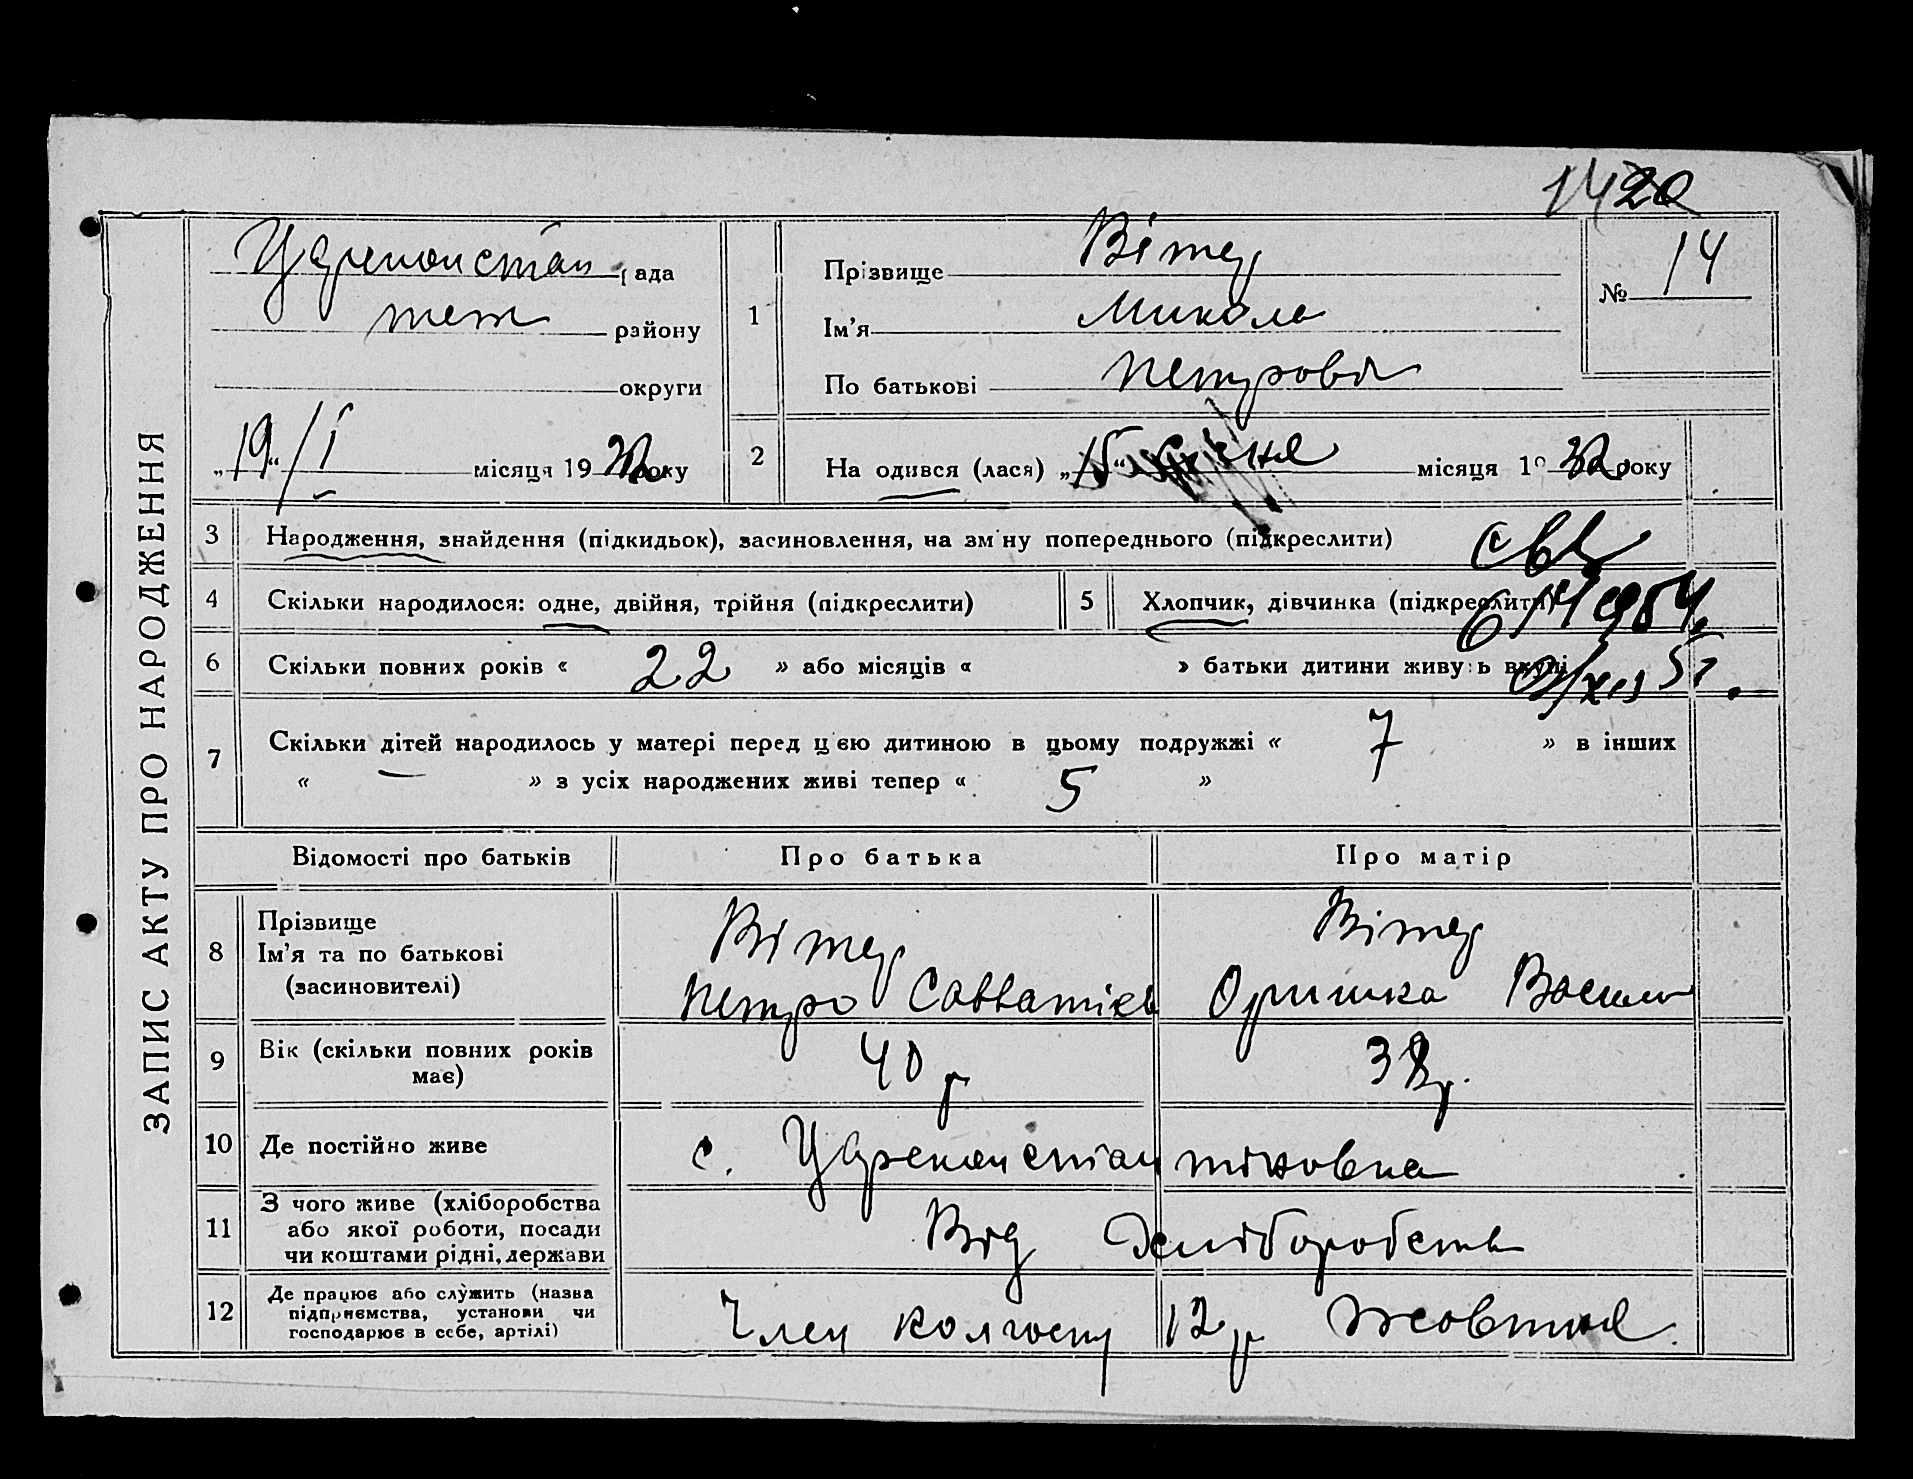 1420
ЗАПИС АКТУ ПРО НАРОДЖЕННЯ
рада
району
округи
„19“ / I місяця 1932 року
1
Прізвище Вітер
Ім’я Микола
По батькові Петрович
№ 14
2
На одився (лася) „15“ січня місяця 1932 року
3 Народження, знайдення (підкидьок), засиновлення, на зміну попереднього (підкреслити)
4 Скільки народилося: одне, двійня, трійня (підкреслити)
5 Хлопчик, дівчинка (підкреслити)
6 Скільки повних років « 22 » або місяців « » батьки дитини живуть вкупі
7 Скільки дітей народилось у матері перед цією дитиною в цьому подружжі « 7 » в інших
« — » з усіх народжених живі тепер « 5 »
Відомості про батьків Про батька Про матір
8 Прізвище
Ім’я та по батькові
(засиновителі)
Вітер
Петро
Вітер
Оришка Васил
9 Вік (скільки повних років
має)
40 р
38 р.
10 Де постійно живе
с. Цареконстантиновка
11 З чого живе (хліборобства
або якої роботи, посади
чи коштами рідні, держави
Від хліборобств
12 Де працює або служить (назва
підприємства, установи чи
господарює в себе, артілі)
Член колгоспу 12 р Жовтня.